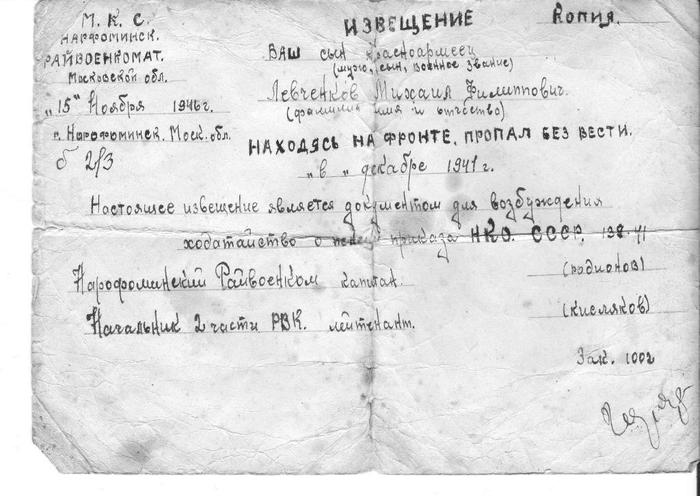 М. К. С.
НАРФОМИНСК.
РАЙВОЕНКОМАТ.
Московской обл.
"15" Ноября 1946 г.
г. Нарофоминск. Моск. обл.
б 2/3
ИЗВЕЩЕНИЕ
Копия.
ВАШ сын красноармеец
(муж, сын, военное звание)
Левченков Михаил Филиппович.
(фамилия имя и отчество)
НАХОДЯСЬ НА ФРОНТЕ, ПРОПАЛ БЕЗ ВЕСТИ.
"в" декабре 1941 г.
Настоящее извещение является документом для возбуждения
ходатайство о приказа НКО. СССР.
Нарофоминский Райвоенком капитан. (Родионов)
Начальник 2 части РВК. лейтенант. (Кисляков)
Зак. 1002